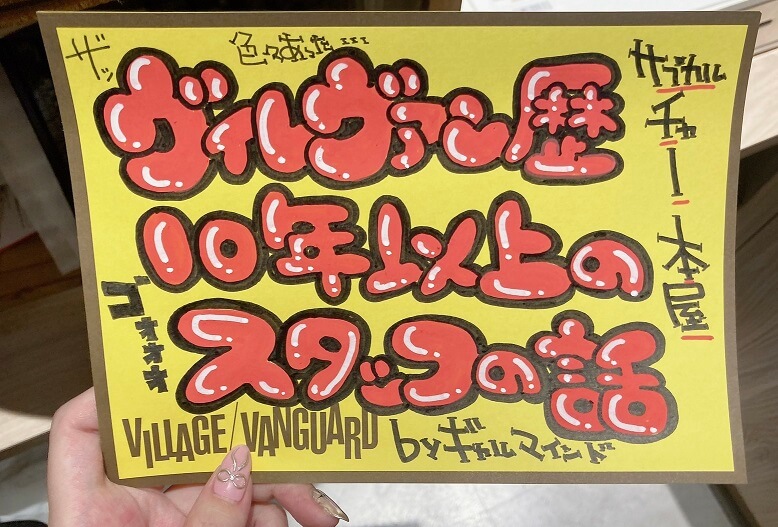 ザッ
色々あった…
ヴィレヴァン歴
10年以上の
スタッフの話
サブカル
チャー本屋
ゴォォォ
VILLAGE/VANGUARD
byギャルマインド